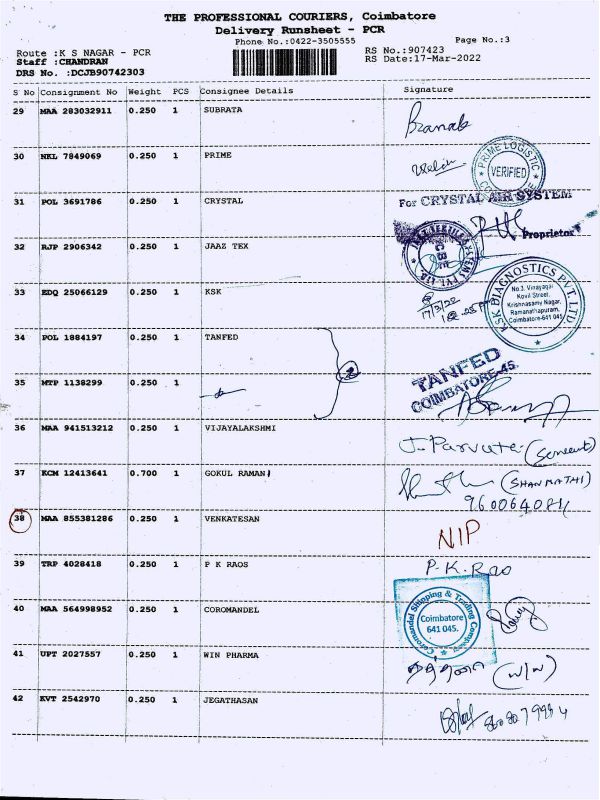 THE PROFESSIONAL COURIERS, Coimbatore
Delivery Runsheet - PCR
Phone No.:0422-3505555 Page No.:3
Route :K S NAGAR - PCR RS No.:907423
Staff :CHANDRAN RS Date:17-Mar-2022
DRS No. :DCJB90742303
S No Consignment No Weight PCS Consignee Details Signature
29 MAA 283032911 0.250 1 SUBRATA Pranab
30 NKL 7849069 0.250 1 PRIME PRIME LOGISTIC VERIFIED
31 POL 3691786 0.250 1 CRYSTAL For CRYSTAL AIR SYSTEM
Proprietor
32 RJP 2906342 0.250 1 JAAZ TEX
33 EDQ 25066129 0.250 1 KSK 17/3/22
KSK DIAGNOSTICS PVT. LTD
No 3, Vinayagar
Kovil Street,
Krishnasamy Nagar,
Ramanathapuram,
Coimbatore-641 045
34 POL 1884197 0.250 1 TANFED 2
TANFED
COIMBATORE-45
35 MTP 1138299 0.250 1 do
36 MAA 941513212 0.250 1 VIJAYALAKSHMI J. Parvate (Servent)
37 KCM 12413641 0.700 1 GOKUL RAMAN (SHANMATHI)
38 MAA 855381286 0.250 1 VENKATESAN NIP
39 TRP 4028418 0.250 1 P K RAOS P.K. Rao
40 MAA 564998952 0.250 1 COROMANDEL Coromandel Shipping & Trading Company
Coimbatore
641 045.
41 UPT 2027557 0.250 1 WIN PHARMA (W/N)
42 KVT 2542970 0.250 1 JEGATHASAN